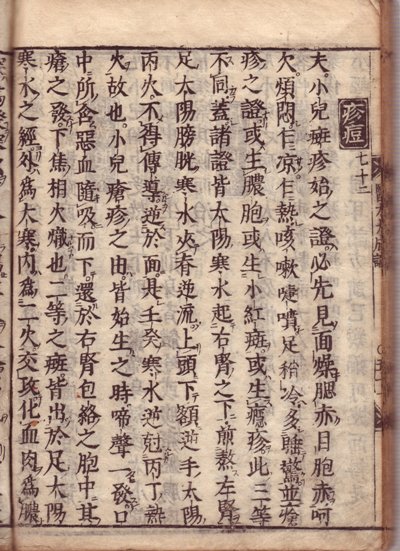 疹痘 七十二
夫小兒斑疹始之證必先見面燥腮赤目胞赤呵
欠煩悶乍凉乍熱咳嗽嚏噴足稍冷多睡驚並瘡
疹之證或生膿胞或生小紅斑或生癮疹此三等
不同蓋諸證皆太陽寒水起右腎之下煎熬左腎
足太陽膀胱寒水夾脊逆流上頭下額逆手太陽
丙火不得傳導逆於面是壬癸寒水逆尅丙丁熱
火故也小兒瘡疹之由皆始生之時啼聲一發口
中所含惡血隨吸而下還於右腎包絡之胞中其
瘡之發下焦相火熾也二等之斑皆出於足太陽
寒水之經外爲大寒内爲二火交攻化血肉爲膿